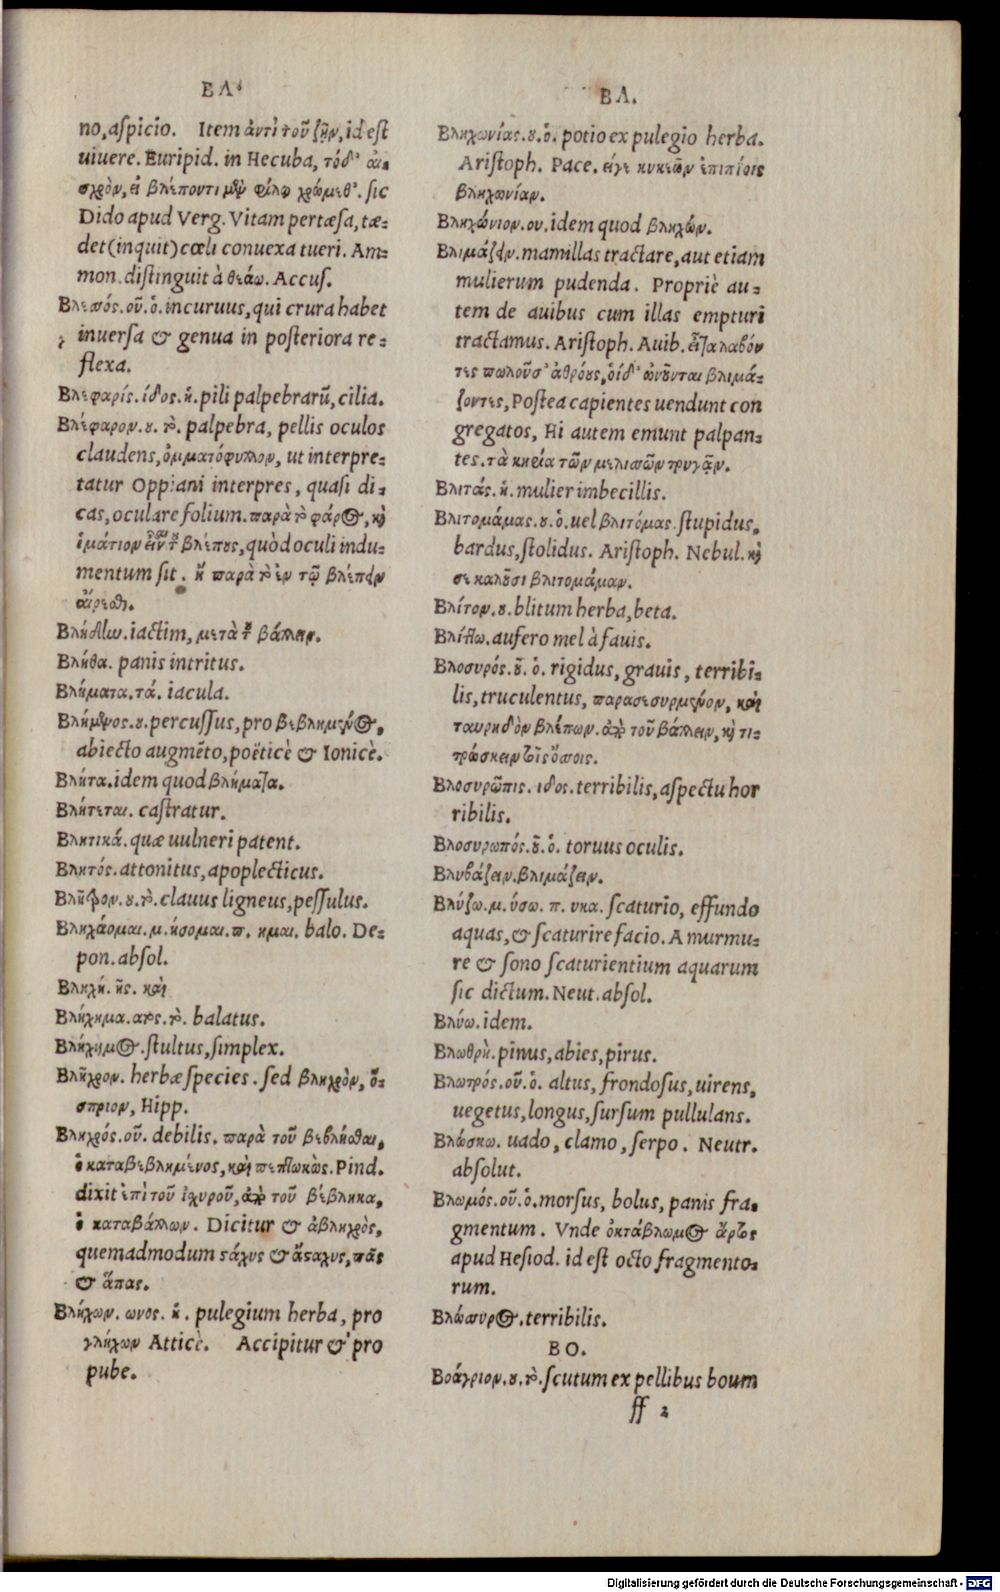 ΒΛ.
no, aspicio. Item ἀντὶ τοῦ ζῆν, id est
uiuere. Euripid. in Hecuba, τόδ' αἰ-
σχρὸν, εἰ βλέποντι μὲν φίλῳ χρώμεθ'. sic
Dido apud Verg. Vitam pertæsa, tæ-
det (inquit) cœli conuexa tueri. Am-
mon. distinguit à θεάω. Accus.
Βλεσός. οῦ. ὁ. incuruus, qui crura habet
inuersa & genua in posteriora re-
flexa.
Βλεφαρίς. ίδος. ἡ. pili palpebrarũ, cilia.
Βλέφαρον. ου. τὸ. palpebra, pellis oculos
claudens, ὀμματόφυλλον, ut interpre-
tatur Oppiani interpres, quasi di-
cas, oculare folium. παρὰ τὸ φάρος, καὶ
ἱμάτιον εἶναι τοῦ βλέπους, quòd oculi indu-
mentum sit. ἢ παρὰ τὸ ἐν τῷ βλέπειν
αἴρεσθαι.
Βλήδην. iactim, μετὰ τοῦ βάλλειν.
Βλήθα. panis intritus.
Βλήματα. τά. iacula.
Βλήμενος. ου. percussus, pro βεβλημένος,
abiecto augmẽto, poëticè & Ionicè.
Βλήτα. idem quod βλήματα.
Βλήτεται. castratur.
Βλητικά. quæ uulneri patent.
Βλητός. attonitus, apoplecticus.
Βλῆτρον. ου. τὸ. clauus ligneus, pessulus.
Βληχάομαι. μ. ήσομαι. π. ημαι. balo. De-
pon. absol.
Βληχή. ῆς. καὶ
Βλήχημα. ατος. τὸ. balatus.
Βλήχημος. stultus, simplex.
Βλῆχρον. herbæ species. sed βληχρὸν, ὄ-
σπριον, Hipp.
Βληχρός. οῦ. debilis. παρὰ τοῦ βεβλῆσθαι,
ὁ καταβεβλημένος, καὶ πεπτωκὼς. Pind.
dixit ἐπὶ τοῦ ἰσχυροῦ, ἀπὸ τοῦ βέβληκα,
ὁ καταβάλλων. Dicitur & ἀβληχρὸς,
quemadmodum στάχυς & ἄσταχυς, πᾶς
& ἅπας.
Βλήχων. ωνος. ἡ. pulegium herba, pro
γλήχων Atticè. Accipitur & pro
pube.
ΒΛ.
Βληχωνίας. ου. ὁ. potio ex pulegio herba.
Aristoph. Pace. εἴγε κυκεῶν ἐπιπίοις
βληχωνίαν.
Βληχώνιον. ου. idem quod βληχών.
Βλιμάζειν. mamillas tractare, aut etiam
mulierum pudenda. Propriè au-
tem de auibus cum illas empturi
tractamus. Aristoph. Auib. εἶτα λαβόν
τες πωλοῦσ' ἀθρόους, οἱ δ' ὠνοῦνται βλιμά-
ζοντες, Postea capientes uendunt con
gregatos, Hi autem emunt palpan-
tes. τὰ κηρία τῶν μελισσῶν τρυγᾶν.
Βλιτάς. ἡ. mulier imbecillis.
Βλιτομάμας. ου. ὁ. uel βλιτόμας. stupidus,
bardus, stolidus. Aristoph. Nebul. καὶ
σε καλοῦσι βλιτομάμαν.
Βλίτον. ου. blitum herba, beta.
Βλίττω. aufero mel à fauis.
Βλοσυρός. οῦ. ὁ. rigidus, grauis, terribi-
lis, truculentus, παρασεσυρμένον, καὶ
ταυρηδὸν βλέπων. ἀπὸ τοῦ βάλλειν, καὶ τι-
τρώσκειν τοῖς ὄσσοις.
Βλοσυρῶπις. ιδος. terribilis, aspectu hor
ribilis.
Βλοσυρωπός. οῦ. ὁ. toruus oculis.
Βλυβάζειν. βλιμάζειν.
Βλύζω. μ. ύσω. π. υκα. scaturio, effundo
aquas, & scaturire facio. A murmu-
re & sono scaturientium aquarum
sic dictum. Neut. absol.
Βλύω. idem.
Βλωθρὴ. pinus, abies, pirus.
Βλωτρός. οῦ. ὁ. altus, frondosus, uirens,
uegetus, longus, sursum pullulans.
Βλώσκω. uado, clamo, serpo. Neutr.
absolut.
Βλωμός. οῦ. ὁ. morsus, bolus, panis fra-
gmentum. Vnde ὀκτάβλωμος ἄρτος
apud Hesiod. id est octo fragmento-
rum.
Βλώσυρος. terribilis.
ΒΟ.
Βοάγριον. ου. τὸ. scutum ex pellibus boum
ff 2
Digitalisierung gefördert durch die Deutsche Forschungsgemeinschaft - DFG